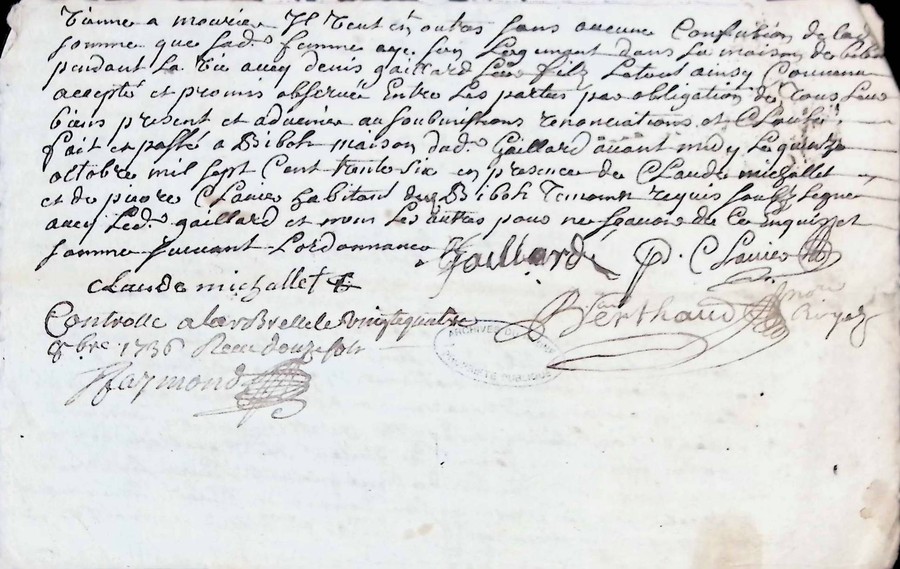 vienne a mourir Il veut en outre sans aucune Confusion de lad
somme que sad. femme aye son Logement dans sa maison de bibo
pendant sa vie avec denis gaillard leur filz Letout ainsy Convenu
accepté et promis observer Entre Les parties par obligation de Tous Leurs
biens present et advenir aux soubmissions renonciations et Clauses
fait et passé a Bibost maison dud. Gaillard avant midy Le quinze
octobre mil sept Cent trente six en presence de Claude michallet
et de pierre Clavier habitans de Bibost Temoins requis soubz signé
avec Led. gaillard et non Les autres pour ne sçavoir de Ce enquis et
sommé suivant Lordonnance
Gaillard P. Clavier
claude michallet
Berthaud
Controllé a larbrelle le vingtquatre
8bre 1736 Receu douze sols
Raymond
ARCHIVES